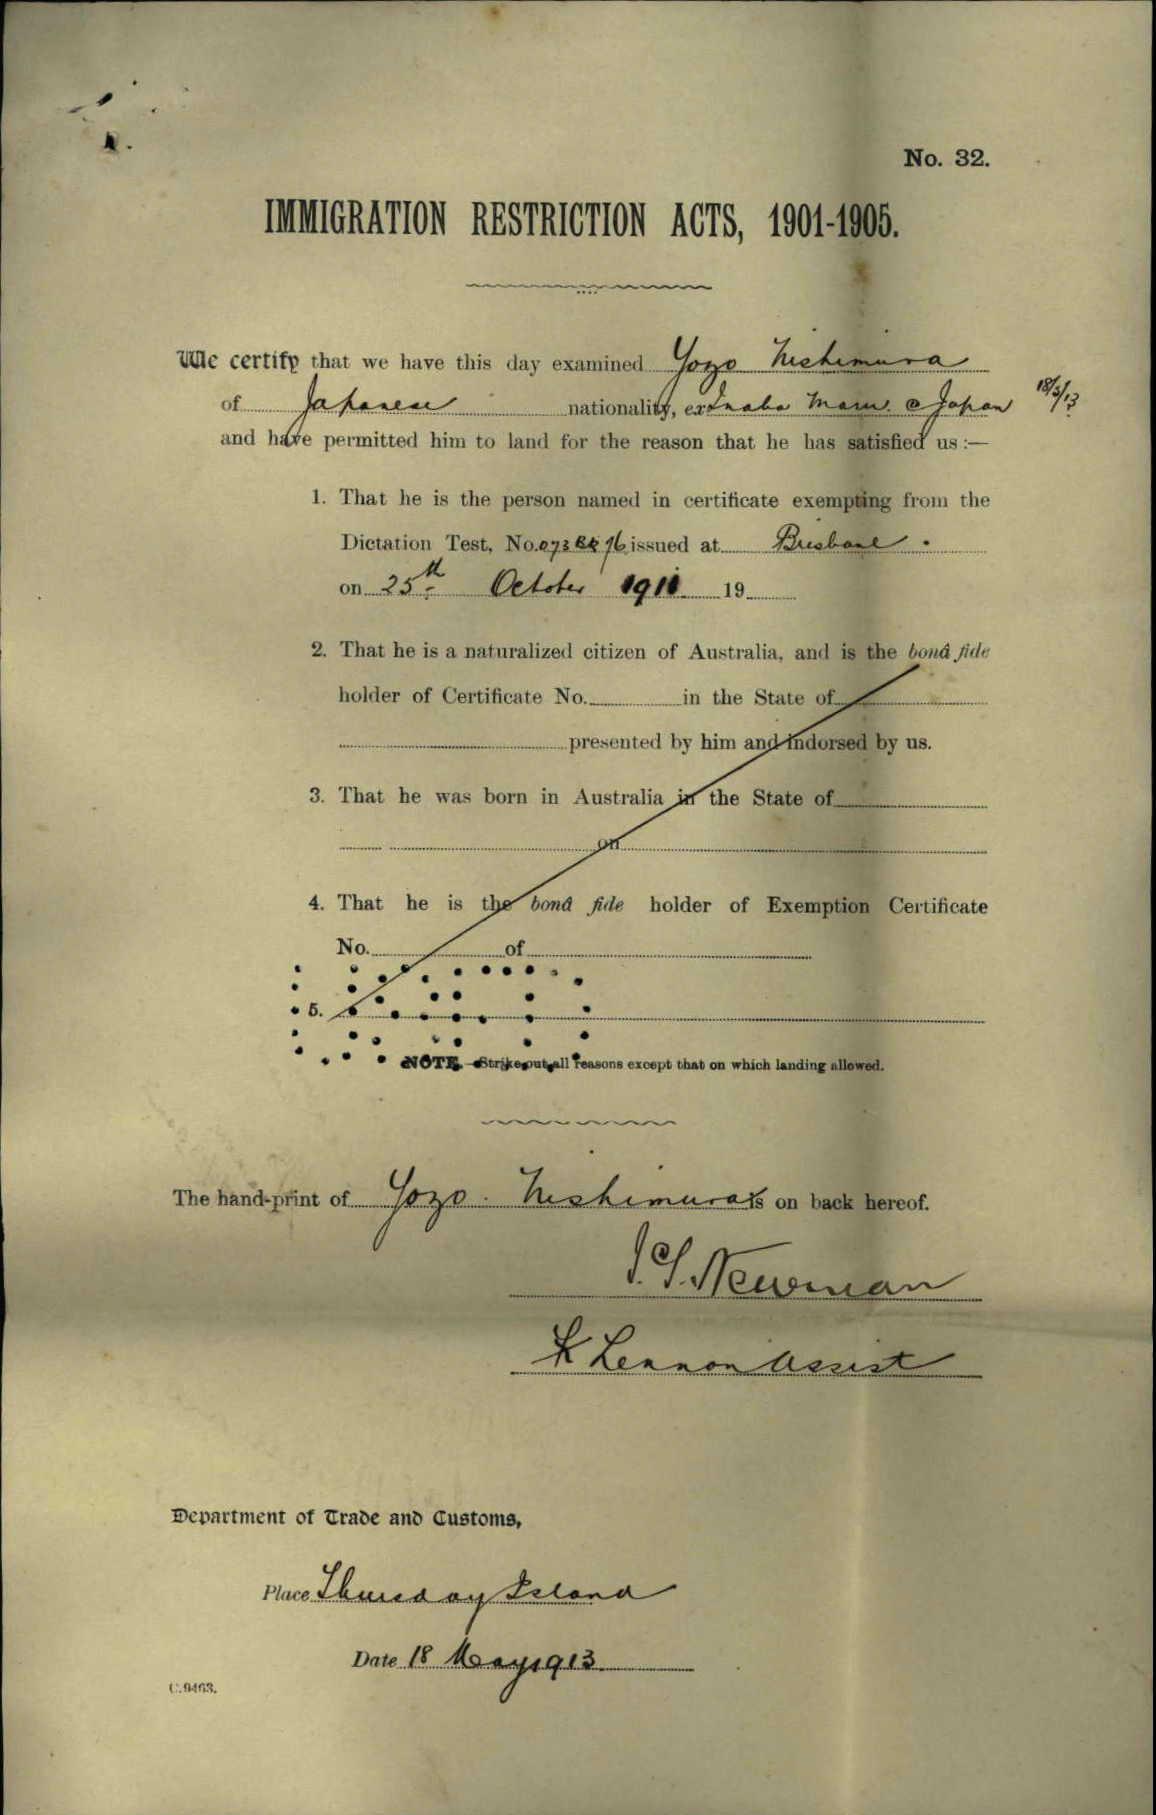 No. 32.
IMMIGRATION RESTRICTION ACTS, 1901-1905.
We certify that we have this day examined Yozo Nishimura
of Japanese nationality, ex Inaba Maru Japan 18/5/13
and have permitted him to land for the reason that he has satisfied us :—
1. That he is the person named in certificate exempting from the
Dictation Test, No. issued at Brisbane .
on 25th October 19
2. That he is a naturalized citizen of Australia, and is the bonâ fide
holder of Certificate No. in the State of
presented by him and indorsed by us.
3. That he was born in Australia in the State of
on
4. That he is the bonâ fide holder of Exemption Certificate
No. of
5.
NOTE.—Strike out all reasons except that on which landing allowed.
The hand-print of Yozo Nishimura is on back hereof.
J.S. Newman
K Lennon Assist
Department of Trade and Customs,
Place Thursday Island
Date 18 May 1913
C.9463.